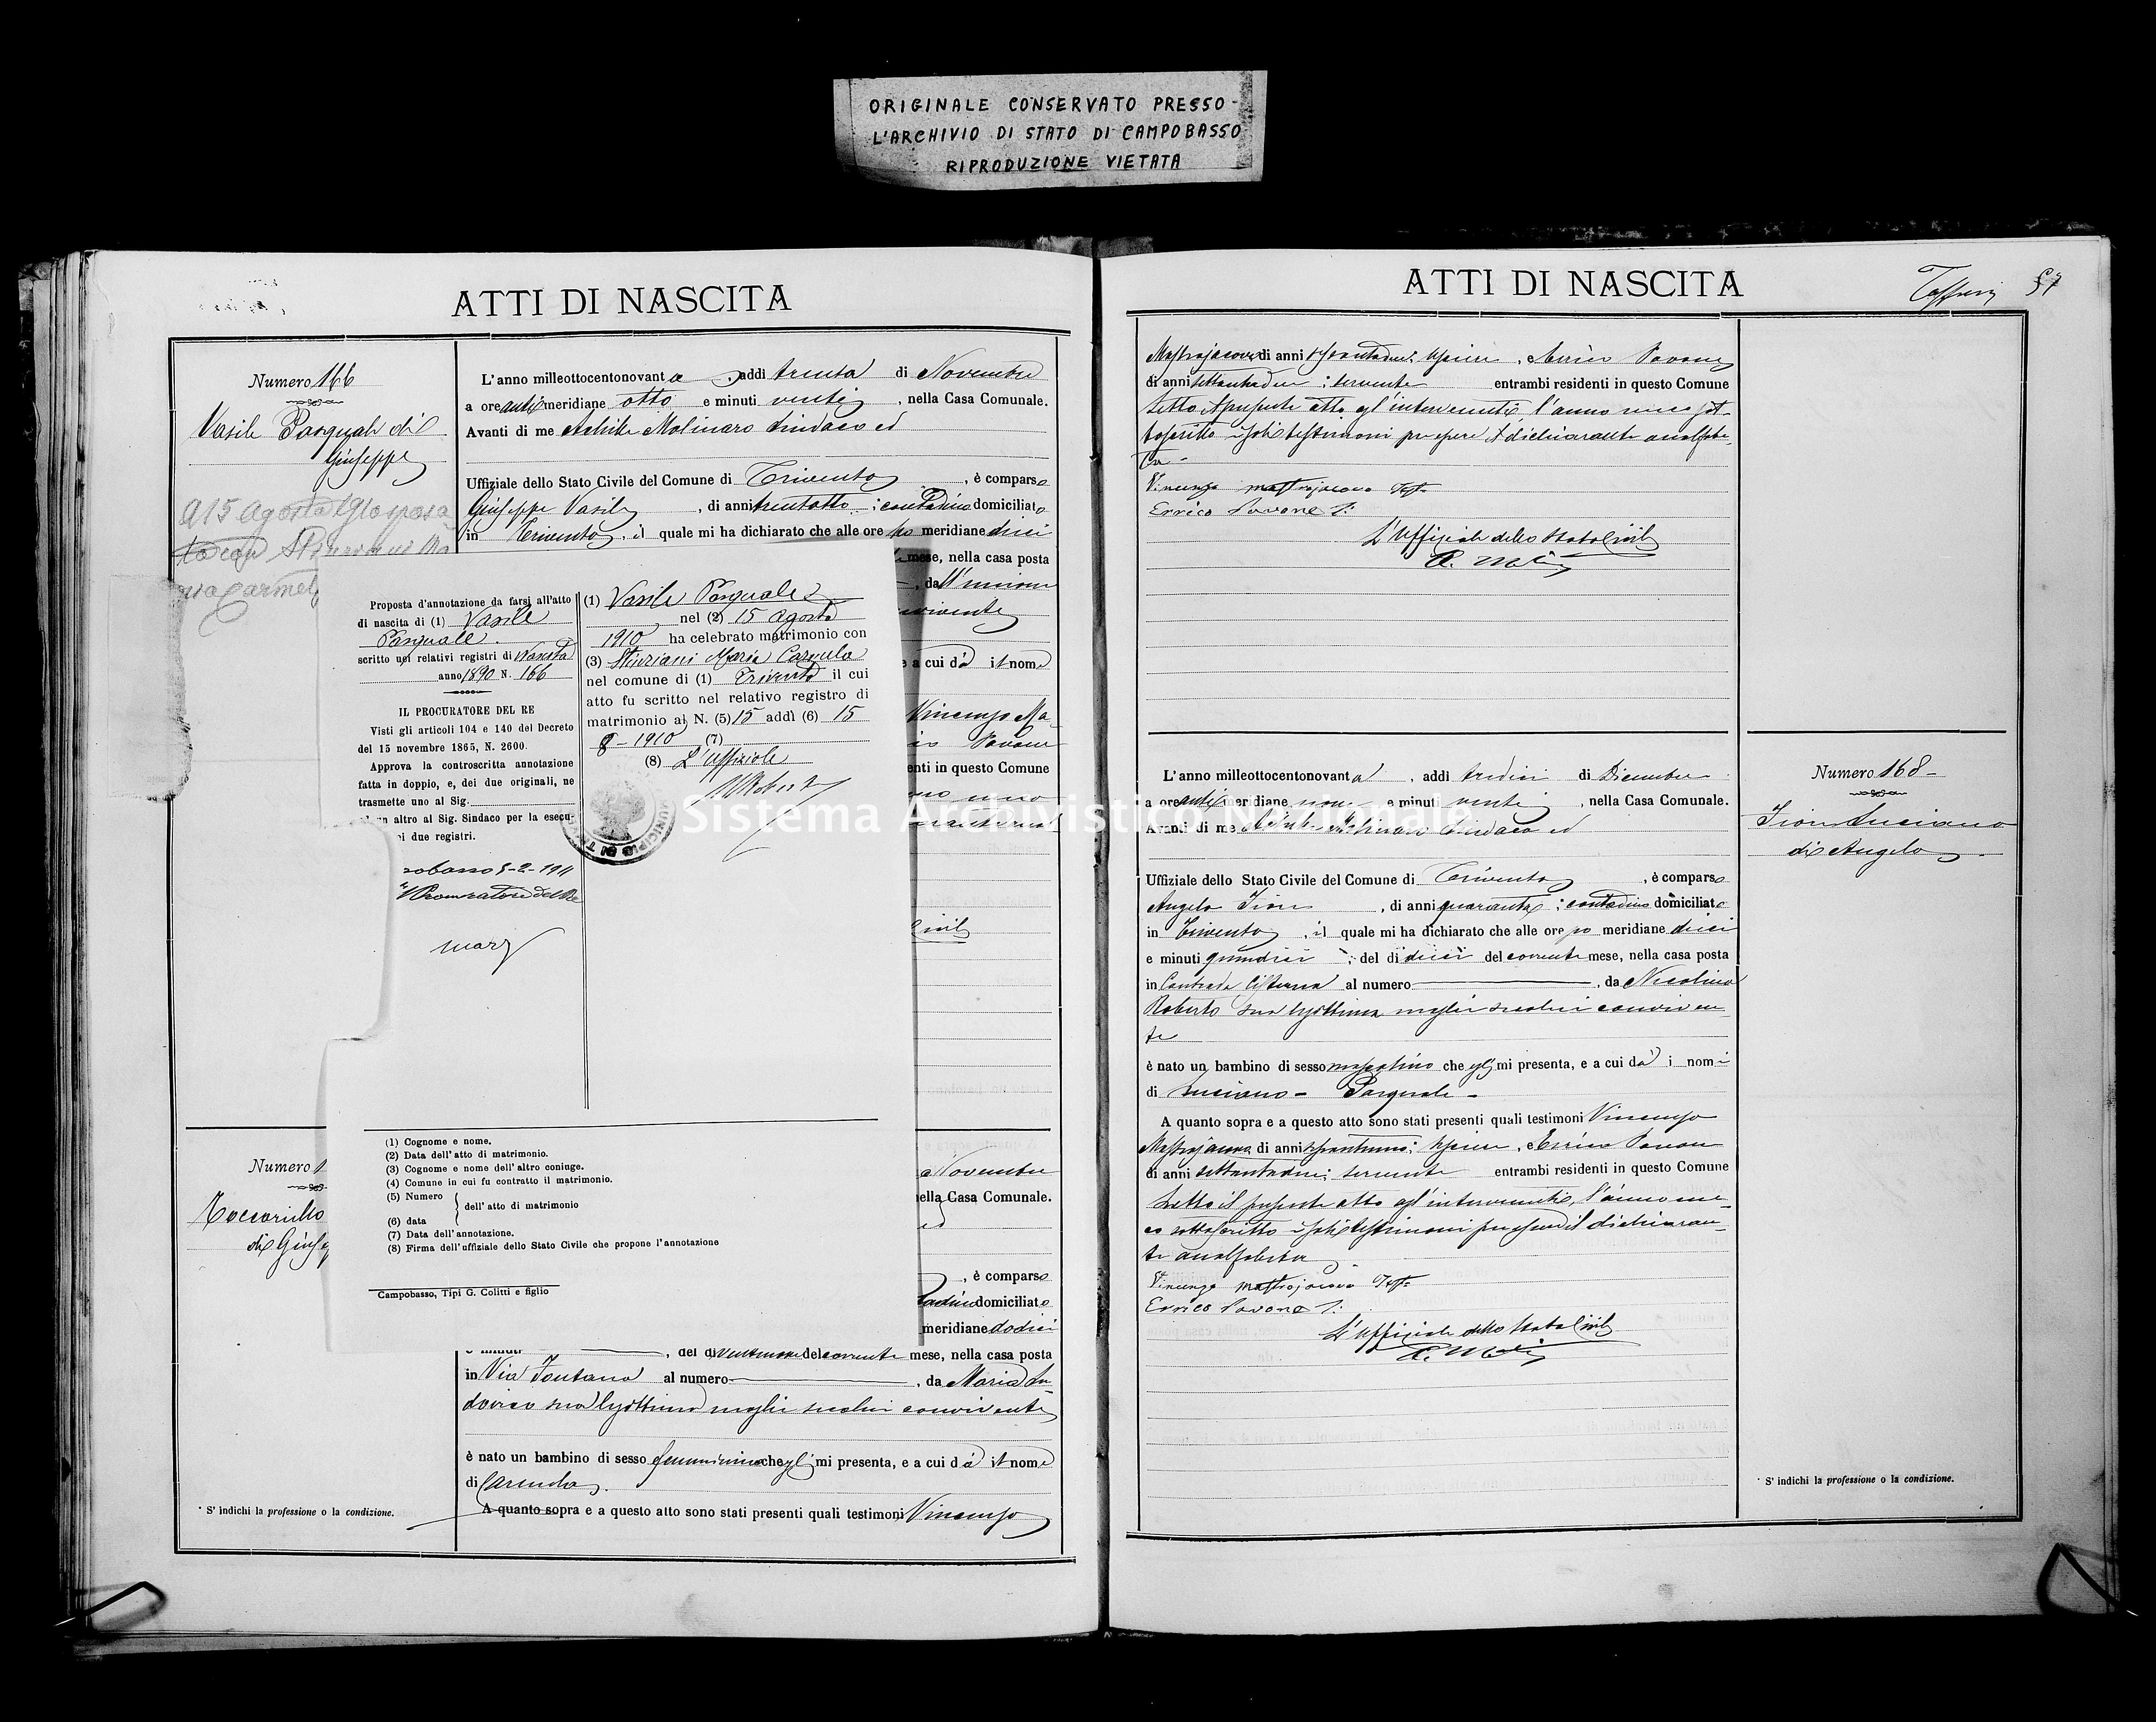 ORIGINALE CONSERVATO PRESSO
L'ARCHIVIO DI STATO DI CAMPOBASSO
RIPRODUZIONE VIETATA
ATTI DI NASCITA
Numero 166
Vasile Pasquale di
Giuseppe
A 15 agosto 1910 sposa
to con Stinziani Ma
ria Carmela
L'anno milleottocentonovanta, addi trenta di Novembre
a ore antimeridiane otto e minuti venti, nella Casa Comunale.
Avanti di me Achille Molinaro Sindaco ed
Uffiziale dello Stato Civile del Comune di Trivento, è comparso
Giuseppe Vasile, di anni trentotto; contadino domiciliato
in Trivento, il quale mi ha dichiarato che alle ore po meridiane dieci
mese, nella casa posta
, da ll'unione
convivente
e a cui dà il nome
Vincenzo Ma-
Pavone
enti in questo Comune
Civile
Proposta d'annotazione da farsi all'atto
di nascita di (1) Vasile
Pasquale.
scritto nei relativi registri di Nascita
anno 1890 N. 166
IL PROCURATORE DEL RE
Visti gli articoli 104 e 140 del Decreto
del 15 novembre 1865, N. 2600.
Approva la controscritta annotazione
fatta in doppio, e, dei due originali, ne
trasmette uno al Sig.
un altro al Sig. Sindaco per la esecu-
ei due registri.
obasso 5-2-1911
Il Procuratore del Re
(1) Vasile Pasquale
nel (2) 15 agosto
1910 ha celebrato matrimonio con
(3) Stinziani Maria Carmela
nel comune di (1) Trivento il cui
atto fu scritto nel relativo registro di
matrimonio al N. (5) 15 addì (6) 15
8-1910 (7)
(8) L'uffiziale
MUNICIPIO DI
(1) Cognome e nome.
(2) Data dell'atto di matrimonio.
(3) Cognome e nome dell'altro coniuge.
(4) Comune in cui fu contratto il matrimonio.
(5) Numero
dell'atto di matrimonio
(6) data
(7) Data dell'annotazione.
(8) Firma dell'uffiziale dello Stato Civile che propone l'annotazione
Campobasso, Tipi G. Colitti e figlio
Numero 1
di Gius
Novembre
nella Casa Comunale.
ed
, è comparso
tadino domiciliato
meridiane dodici
e minuti, del di ventinove del corrente mese, nella casa posta
in Via Fontana al numero, da Maria Lu-
dovico sua legittima moglie seco lui convivente
è nato un bambino di sesso femminino che egli mi presenta, e a cui dà il nome
di Carmela.
A quanto sopra e a questo atto sono stati presenti quali testimoni Vincenzo
* S'indichi la professione o la condizione.
ATTI DI NASCITA
57
Mastrojacovo di anni; usciere, e Errico Pavone
di anni settantadue; servente entrambi residenti in questo Comune
Letto il presente atto agl'intervenuti l'anno meco sot-
toscritto i soli testimoni per essere il dichiarante analfabe-
ta-
Vincenzo Mastrojacovo Teste
Errico Pavone T:
L'Uffiziale dello Stato Civile
A. Moli
L'anno milleottocentonovanta, addi tredici di Dicembre
a ore antimeridiane nove e minuti venti, nella Casa Comunale.
Avanti di me Achille Molinaro Sindaco ed
Uffiziale dello Stato Civile del Comune di Trivento, è comparso
Angelo, di anni quaranta; contadino domiciliato
in Trivento, il quale mi ha dichiarato che alle ore po meridiane dieci
e minuti quindici, del di dieci del corrente mese, nella casa posta
in Contrada Cisterna al numero, da Nicolina
Roberto sua legittima moglie seco lui conviven-
te
è nato un bambino di sesso mascolino che egli mi presenta, e a cui dà i nomi
di Luciano - Pasquale -
A quanto sopra e a questo atto sono stati presenti quali testimoni Vincenzo
Mastrojacovo di anni; usciere, e Errico Pavone
di anni settantadue; servente entrambi residenti in questo Comune
Letto il presente atto agl'intervenuti, l'anno me-
co sottoscritto i soli testimoni per essere il dichiaran-
te analfabeta
Vincenzo Mastrojacovo Teste
Errico Pavone T:
L'Uffiziale dello Stato Civile
A. Moli
Numero 168-
Luciano
di Angelo
* S'indichi la professione o la condizione.
Sistema Archivistico Nazionale